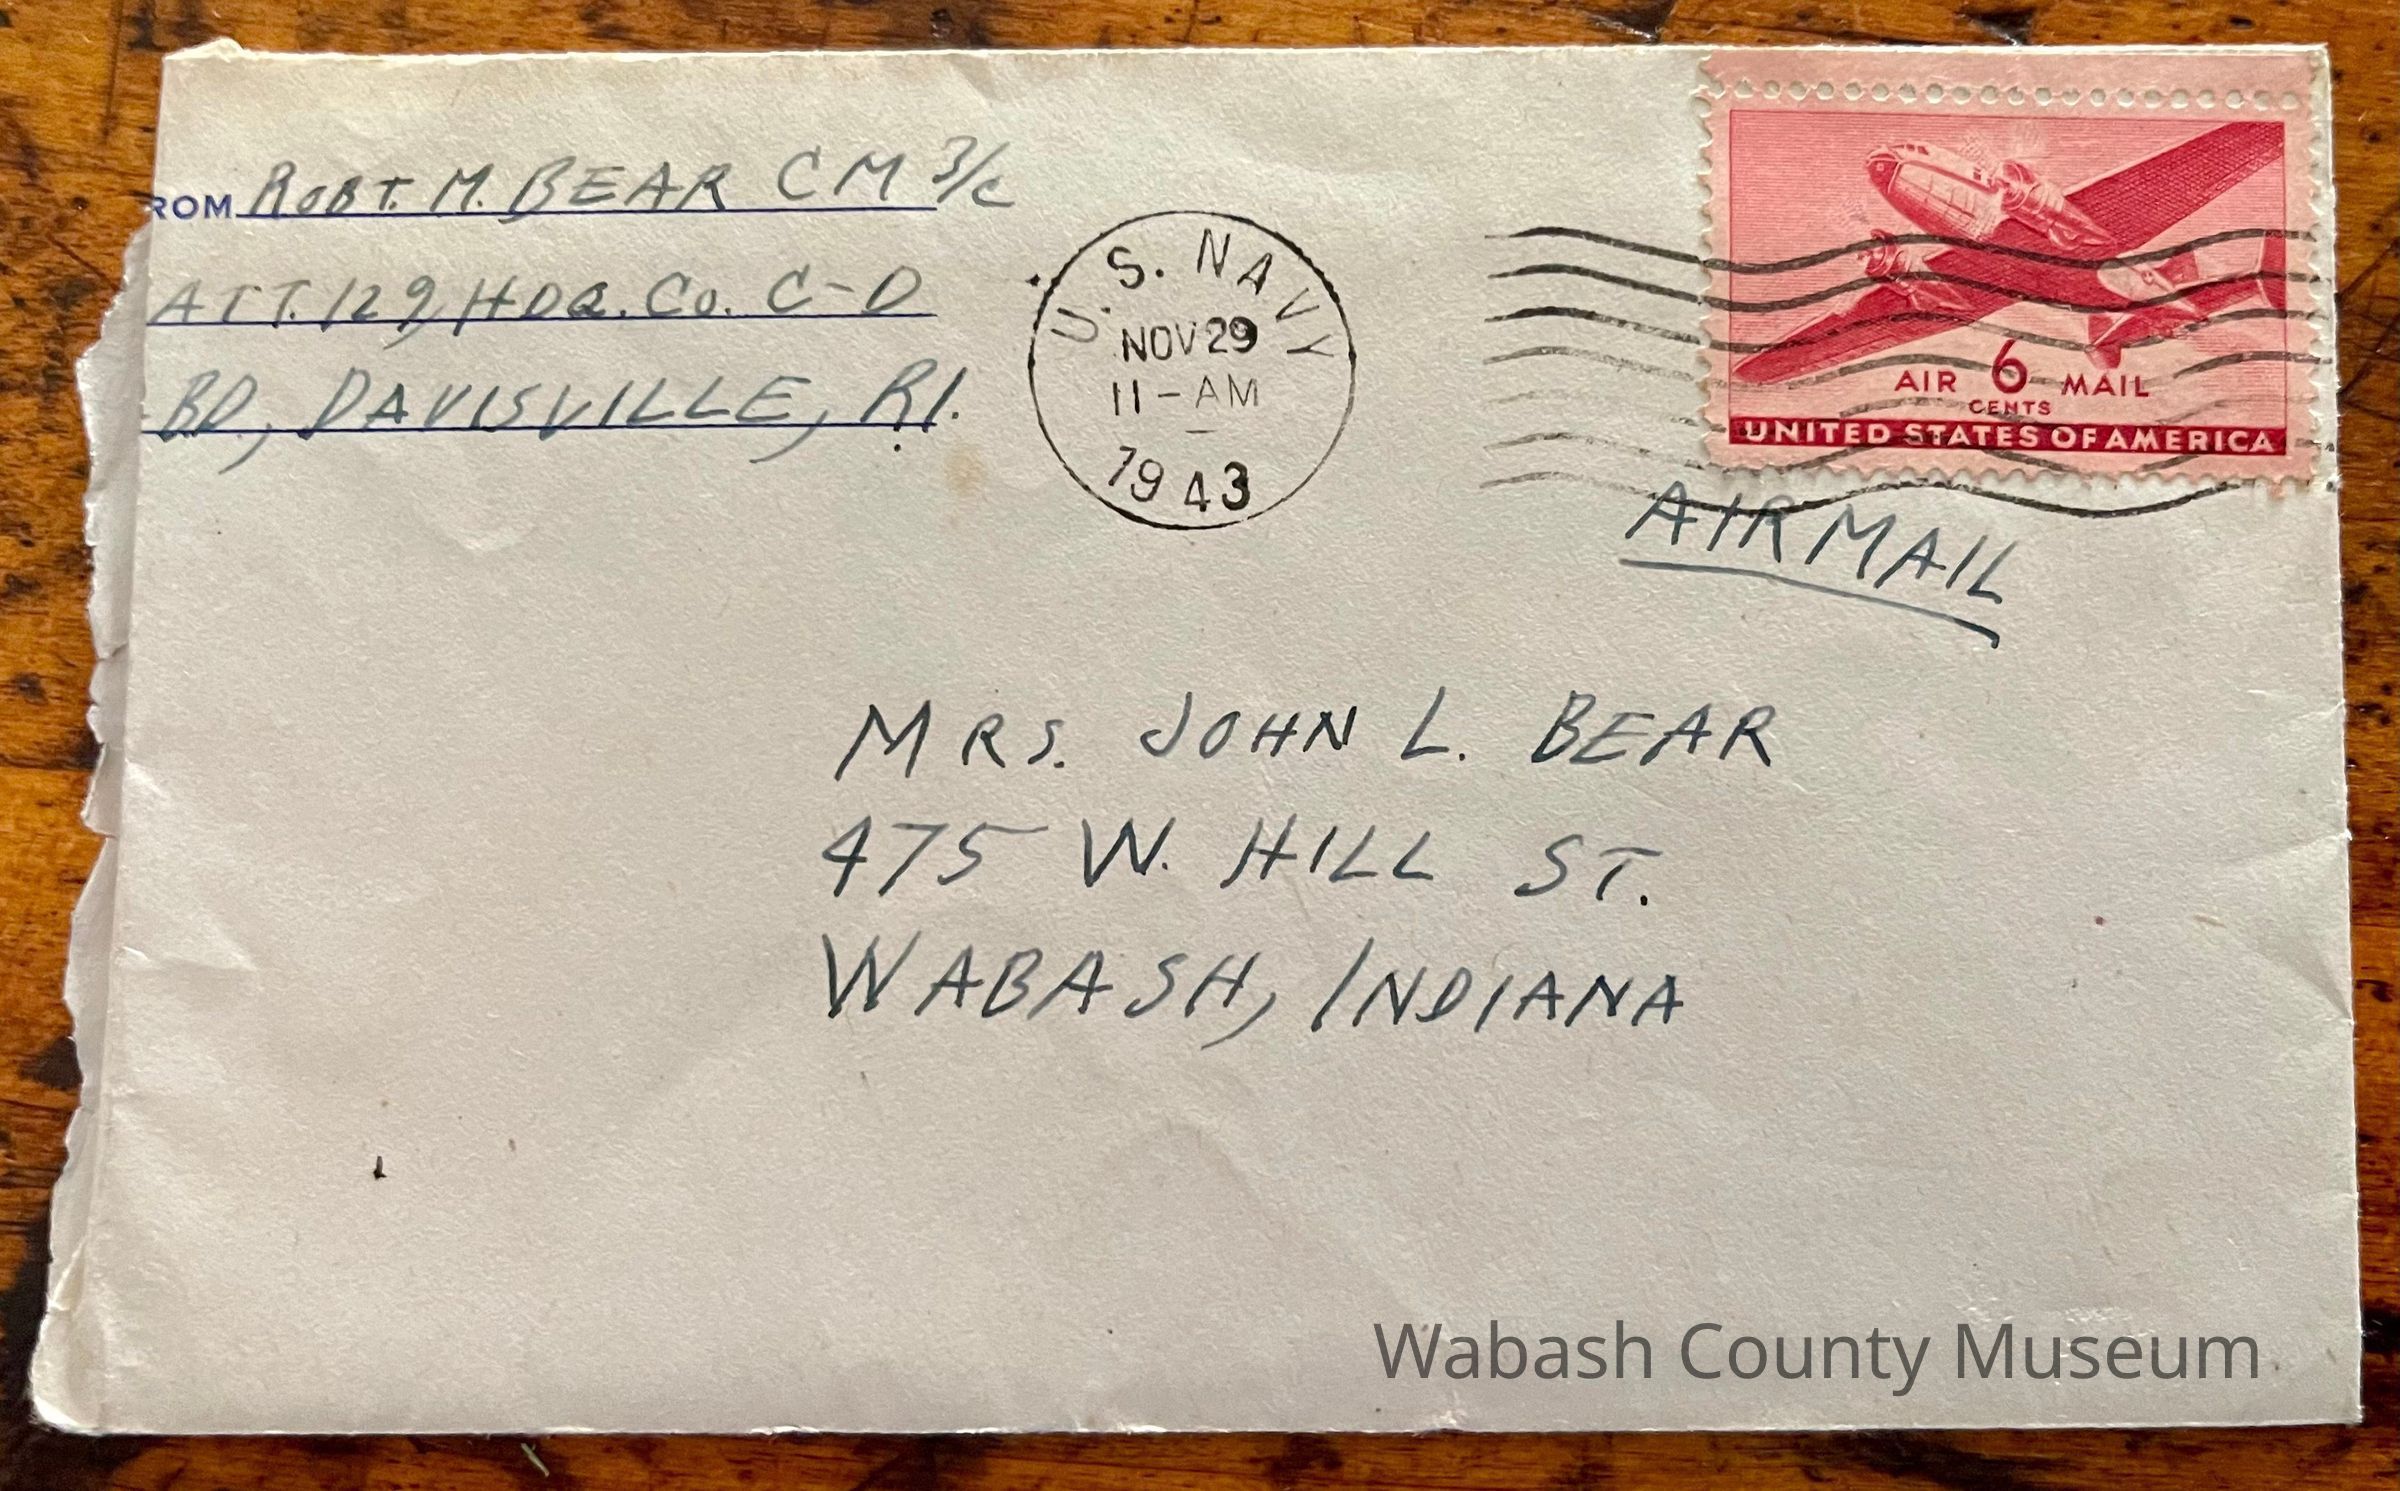 ROM ROBT. M. BEAR CM 3/c
ATT. 129, HDQ. CO. C-D
BD., DAVISVILLE, R.I.
U.S. NAVY
NOV 29
11-AM
1943
AIR 6 MAIL
CENTS
UNITED STATES OF AMERICA
AIRMAIL
MRS. JOHN L. BEAR
475 W. HILL ST.
WABASH, INDIANA
Wabash County Museum